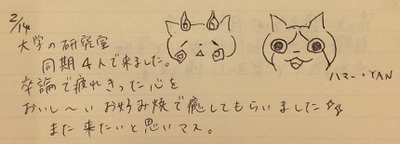 2/14
大学の研究室
同期4人で来ました。
卒論で疲れきった心を
おいし〜いお好み焼で癒してもらいました☆
また来たいと思いマス。
ハマー・YAN